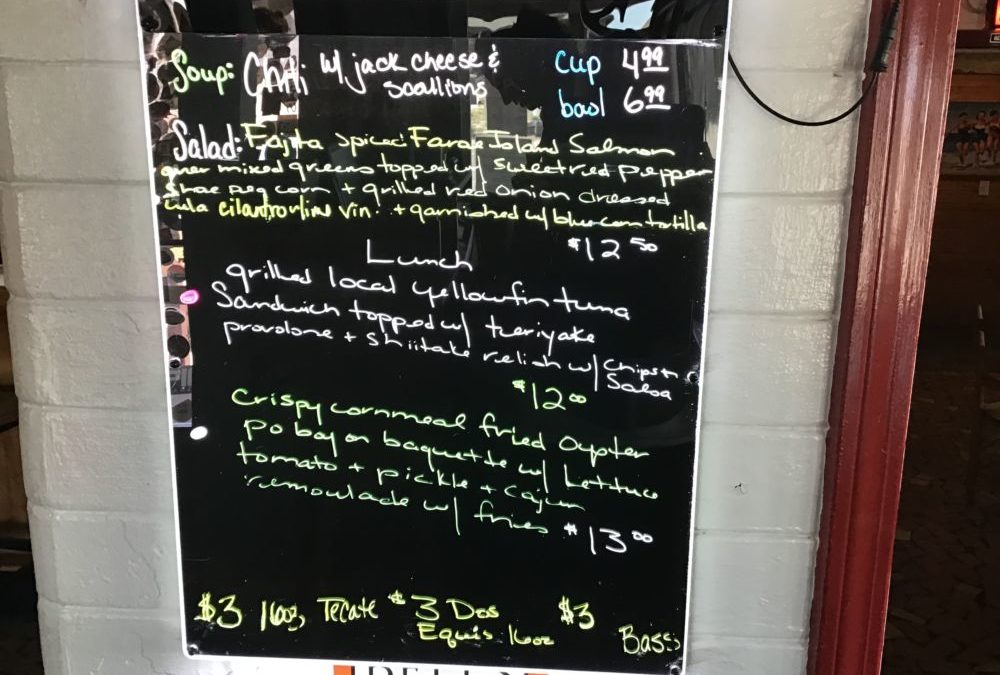 Soup: Chili w/ jack cheese & scallions
cup 4.99
bowl 6.99
Salad: Fajita Spiced Faroe Island Salmon
over mixed greens topped w/ sweet red pepper
shoe peg corn + grilled red onion dressed
cilantro lime vin. + garnished w/ blue corn tortilla
$12.50
Lunch
grilled local yellowfin tuna
Sandwich topped w/ teriyake
provolone + shiitake relish w/ chips + Salsa
$12.00
Crispy cornmeal fried oyster
po boy on baguette w/ lettuce
tomato + pickle + cajun
remoulade w/ fries $13.00
$3 16oz, Tecate $3 Dos Equis 16oz $3 Bass